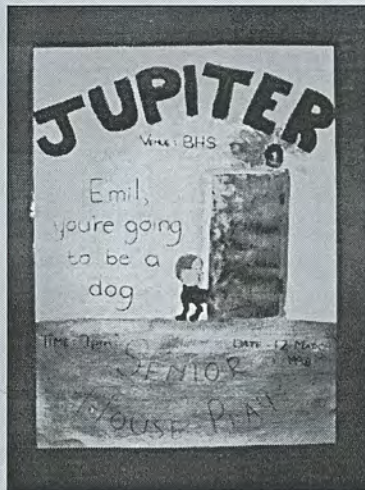 JUPITER
Venue: BHS
Emil,
you're going
to be a
dog
TIME: 7pm DATE: 12 March
SENIOR
HOUSE PLAY